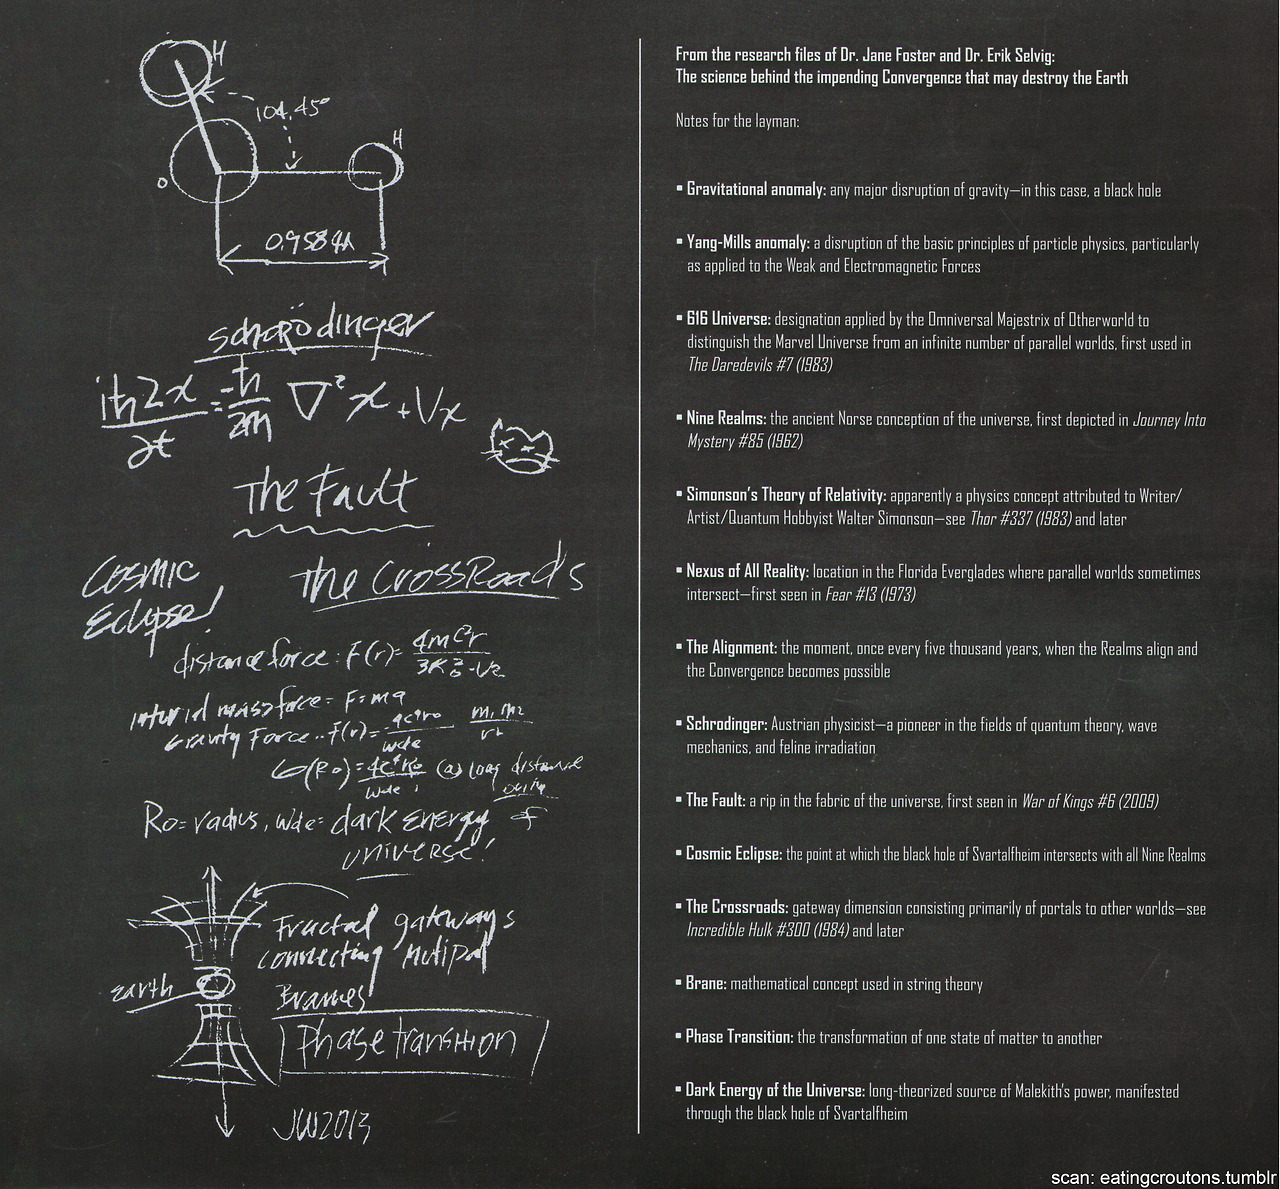 H
104.45°
H
O
0.9584A
Schrödinger
iħ2x
∂t
=
-ħ
2m
∇²x + Vx
The Fault
Cosmic
Eclipse!
The CrossRoads
distance force: F(r)=
force = F=ma
Gravity Force
m1 m2
(a) long distance
Ro = radius, Wde = dark energy of
universe!
Fractal gateways
connecting
Branes
earth
Phase transition
JW2013
From the research files of Dr. Jane Foster and Dr. Erik Selvig:
The science behind the impending Convergence that may destroy the Earth
Notes for the layman:
▪ Gravitational anomaly: any major disruption of gravity—in this case, a black hole
▪ Yang-Mills anomaly: a disruption of the basic principles of particle physics, particularly
as applied to the Weak and Electromagnetic Forces
▪ 616 Universe: designation applied by the Omniversal Majestrix of Otherworld to
distinguish the Marvel Universe from an infinite number of parallel worlds, first used in
The Daredevils #7 (1983)
▪ Nine Realms: the ancient Norse conception of the universe, first depicted in Journey Into
Mystery #85 (1962)
▪ Simonson's Theory of Relativity: apparently a physics concept attributed to Writer/
Artist/Quantum Hobbyist Walter Simonson—see Thor #337 (1983) and later
▪ Nexus of All Reality: location in the Florida Everglades where parallel worlds sometimes
intersect—first seen in Fear #13 (1973)
▪ The Alignment: the moment, once every five thousand years, when the Realms align and
the Convergence becomes possible
▪ Schrodinger: Austrian physicist—a pioneer in the fields of quantum theory, wave
mechanics, and feline irradiation
▪ The Fault: a rip in the fabric of the universe, first seen in War of Kings #6 (2009)
▪ Cosmic Eclipse: the point at which the black hole of Svartalfheim intersects with all Nine Realms
▪ The Crossroads: gateway dimension consisting primarily of portals to other worlds—see
Incredible Hulk #300 (1984) and later
▪ Brane: mathematical concept used in string theory
▪ Phase Transition: the transformation of one state of matter to another
▪ Dark Energy of the Universe: long-theorized source of Malekith's power, manifested
through the black hole of Svartalfheim
scan: eatingcroutons.tumblr